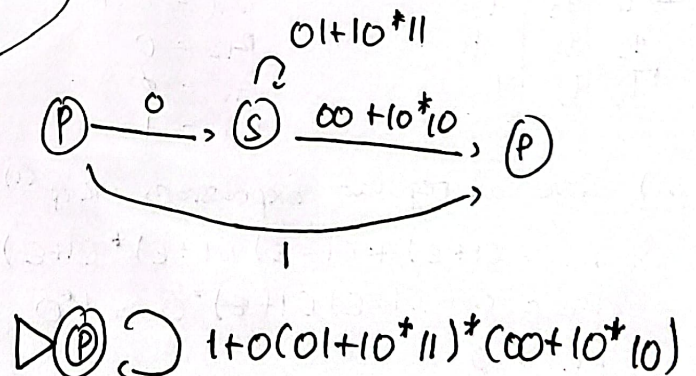 01+10*11
P 0 S 00+10*10 P
1
P 1+0(01+10*11)*(00+10*10)